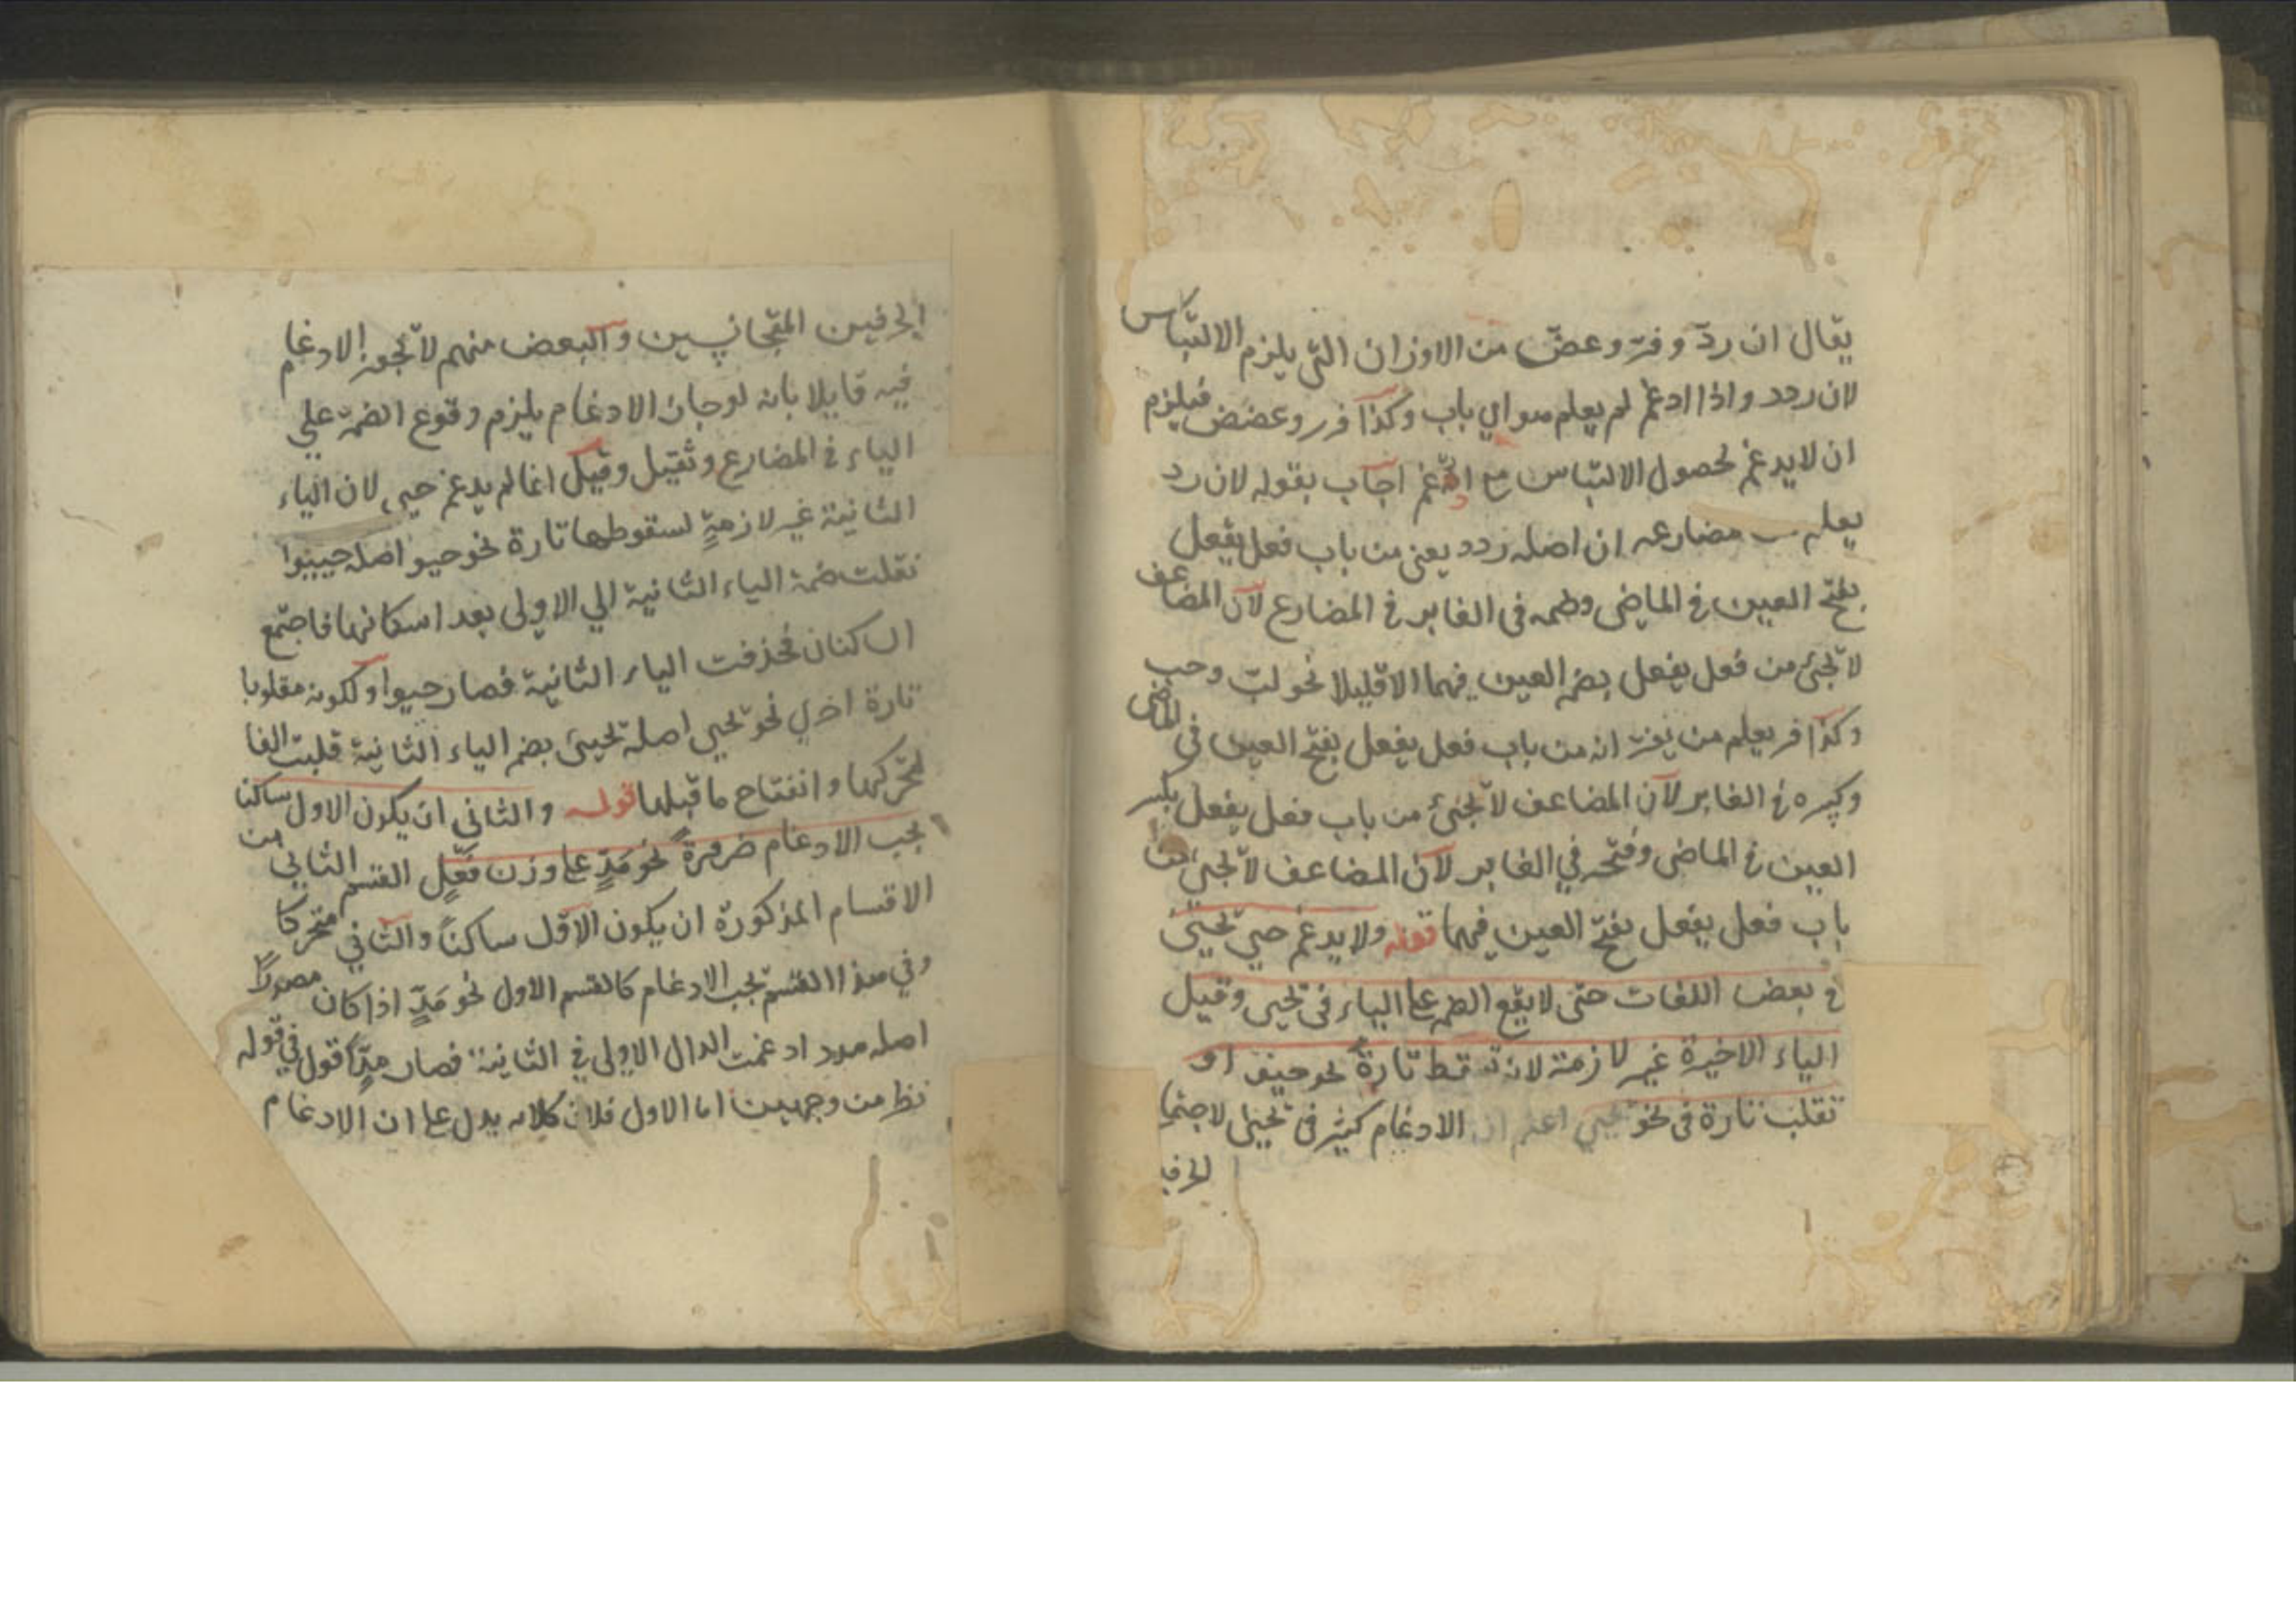 يقال ان ردّ وفرّ وعضّ من الاوزان التى يلزم الالتباس
لان ردد واذا ادغم لم يعلم هو اي باب وكذا فرر وعضض فيلزم
ان لا يدغم لحصول الالتباس مع اجاب بقوله لان رد
يعلم مضارعه ان اصله ردد يعنى من باب فعل يفعل
بفتح العين فى الماضى وضمه فى الغابر فى المضارع لان المضاعف
لا تجئ من فعل يفعل بضم العين فيهما الا قليلا نحو لبّ وحب
وكذا فر يعلم من يفرّ انه من باب فعل يفعل بفتح العين فى الماضى
وكسره فى الغابر لان المضاعف لا تجئ من باب فعل يفعل بكسر
العين فى الماضى وفتحه في الغابر لان المضاعف لا تجئ من
باب فعل يفعل بفتح العين فيهما قوله ولا يدغم حيي تحيى
فى بعض اللغات حتى لا يقع الضم على الياء فى تحيى وقيل
الياء الاخيرة غير لازمة لانه تسقط تارة نحو او
تقلب تارة فى نحو تحيي اعلم ان الادغام كثير فى تحيى لاجتماع
الحرفين
الحرفين المتجانسين والبعض منهم لا تجوز الادغام
فيه قايلا بانه لو جاز الادغام يلزم وقوع الضمة علي
الياء فى المضارع وثقيل وقيل انما لم يدغم حيى لان الياء
الثانية غير لازمةٍ لسقوطها تارة نحو حيو اصله حييوا
نقلت ضمة الياء الثانية الي الاولى بعد اسكانها فاجتمع
الساكنان فحذفت الياء الثانية فصار حيوا ولكونه مقلوبا
تارة اخرى نحو تحيي اصله تحيى بضم الياء الثانية قلبت الفا
لتحركها وانفتاح ما قبلها قوله والثاني ان يكون الاول ساكنا
يجب الادغام ضرورةً نحو مَدٍّ على وزن فَعْلٍ القسم الثاني من
الاقسام المذكورة ان يكون الاول ساكناً والثاني متحركا
وفي هذا القسم تجب الادغام كالقسم الاول نحو مَدٍّ اذا كان مصدراً
اصله مدد ادغمت الدال الاولى فى الثانية فصار مدّاً قول في قوله
نظر من وجهين اما الاول فلان كلامه يدل على ان الادغام